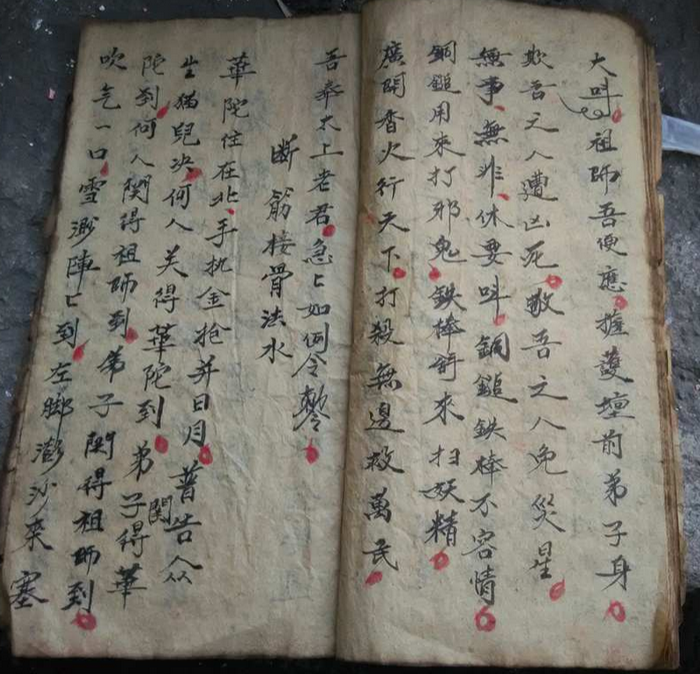 大叫祖師吾便應擁護壇前弟子身
欺吾之人遭凶死敬吾之人免災星
無事無非休要叫銅鎚鉄棒不容情
銅鎚用來打邪鬼鉄棒舒來扫妖精
廣開香火行天下打殺無邊救萬民
吾奉太上老君急〻如律令敕
斷筋接骨法水
華陀住在北手执金抢并日月普告众
生猫兒决何人关得華陀到弟子関得華
陀到何人関得祖師到弟子関得祖師到
吹气一口雪渺陣〻到左脚澎沙来塞